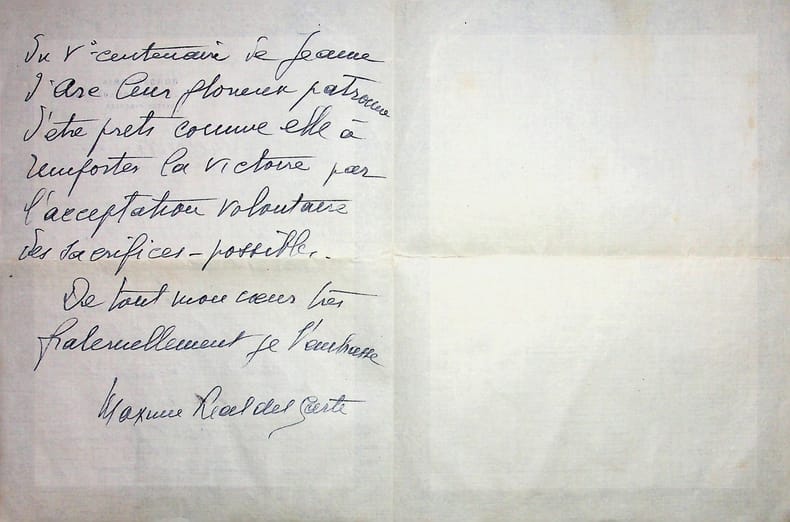 du Vᵉ centenaire de Jeanne
d'Arc leur glorieux patronne
d'être prêts comme elle à
remporter la victoire par
l'acceptation volontaire
des sacrifices - possibles.
De tout mon cœur très
fraternellement je t'embrasse
Maxime Real del Sarte